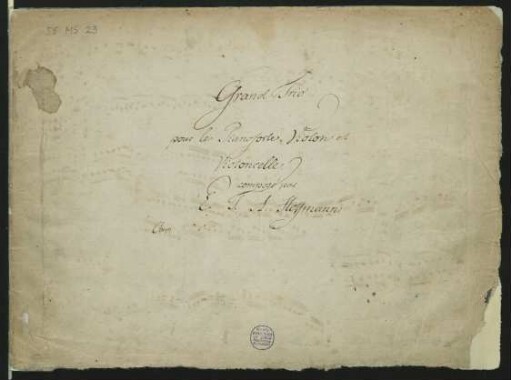 58 MS 23
Grand Trio
pour le Pianoforte, Violon et
Violoncelle
composé par
E. T. A. Hoffmann